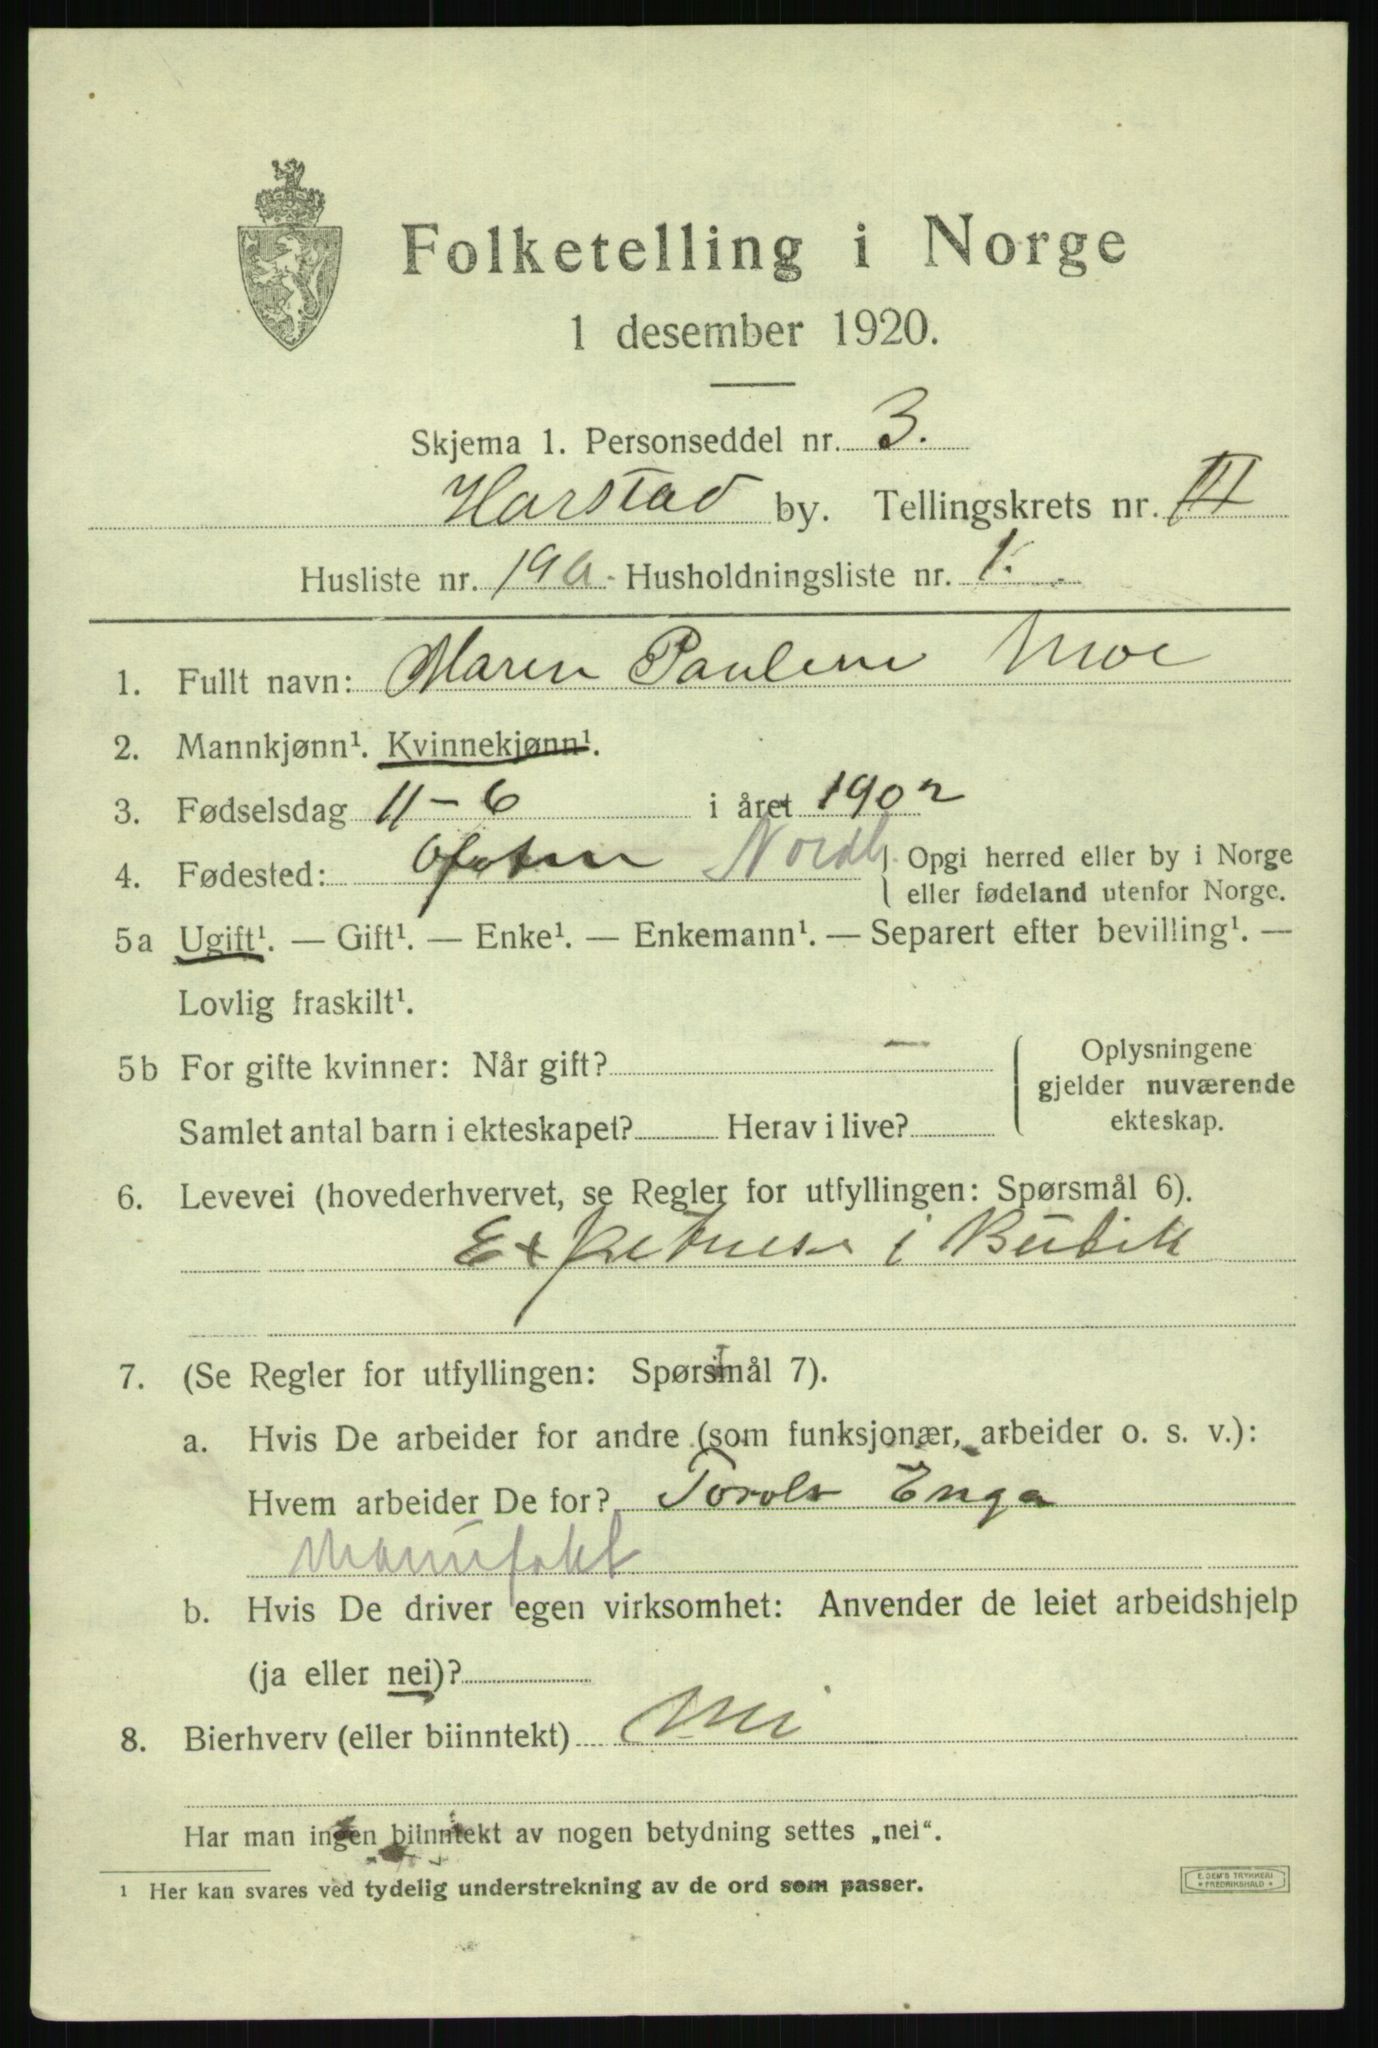 Folketelling i Norge
1 desember 1920.
Skjema 1. Personseddel nr. 3.
Harstad by. Tellingskrets nr. III
Husliste nr. 19a. Husholdningsliste nr. 1.
1. Fullt navn: Maren Pauline Moe
2. Mannkjønn¹. Kvinnekjønn¹.
3. Fødselsdag 11-6 i året 1902
4. Fødested: Ofoten Nordl Opgi herred eller by i Norge
eller fødeland utenfor Norge.
5a Ugift¹. — Gift¹. — Enke¹. — Enkemann¹. — Separert efter bevilling¹. —
Lovlig fraskilt¹.
5b For gifte kvinner: Når gift? —
Samlet antal barn i ekteskapet? Herav i live?
Oplysningene
gjelder nuværende
ekteskap.
6. Levevei (hovederhvervet, se Regler for utfyllingen: Spørsmål 6).
i Butik
7. (Se Regler for utfyllingen: Spørsmål 7).
a. Hvis De arbeider for andre (som funksjonær, arbeider o. s. v.):
Hvem arbeider De for? Torolv Enga
Manufakt
b. Hvis De driver egen virksomhet: Anvender de leiet arbeidshjelp
(ja eller nei)?
8. Bierhverv (eller biinntekt) Nei
Har man ingen biinntekt av nogen betydning settes „nei".
¹ Her kan svares ved tydelig understrekning av de ord som passer.
E. SEM'S TRYKKERI
* FREDRIKSHALD *